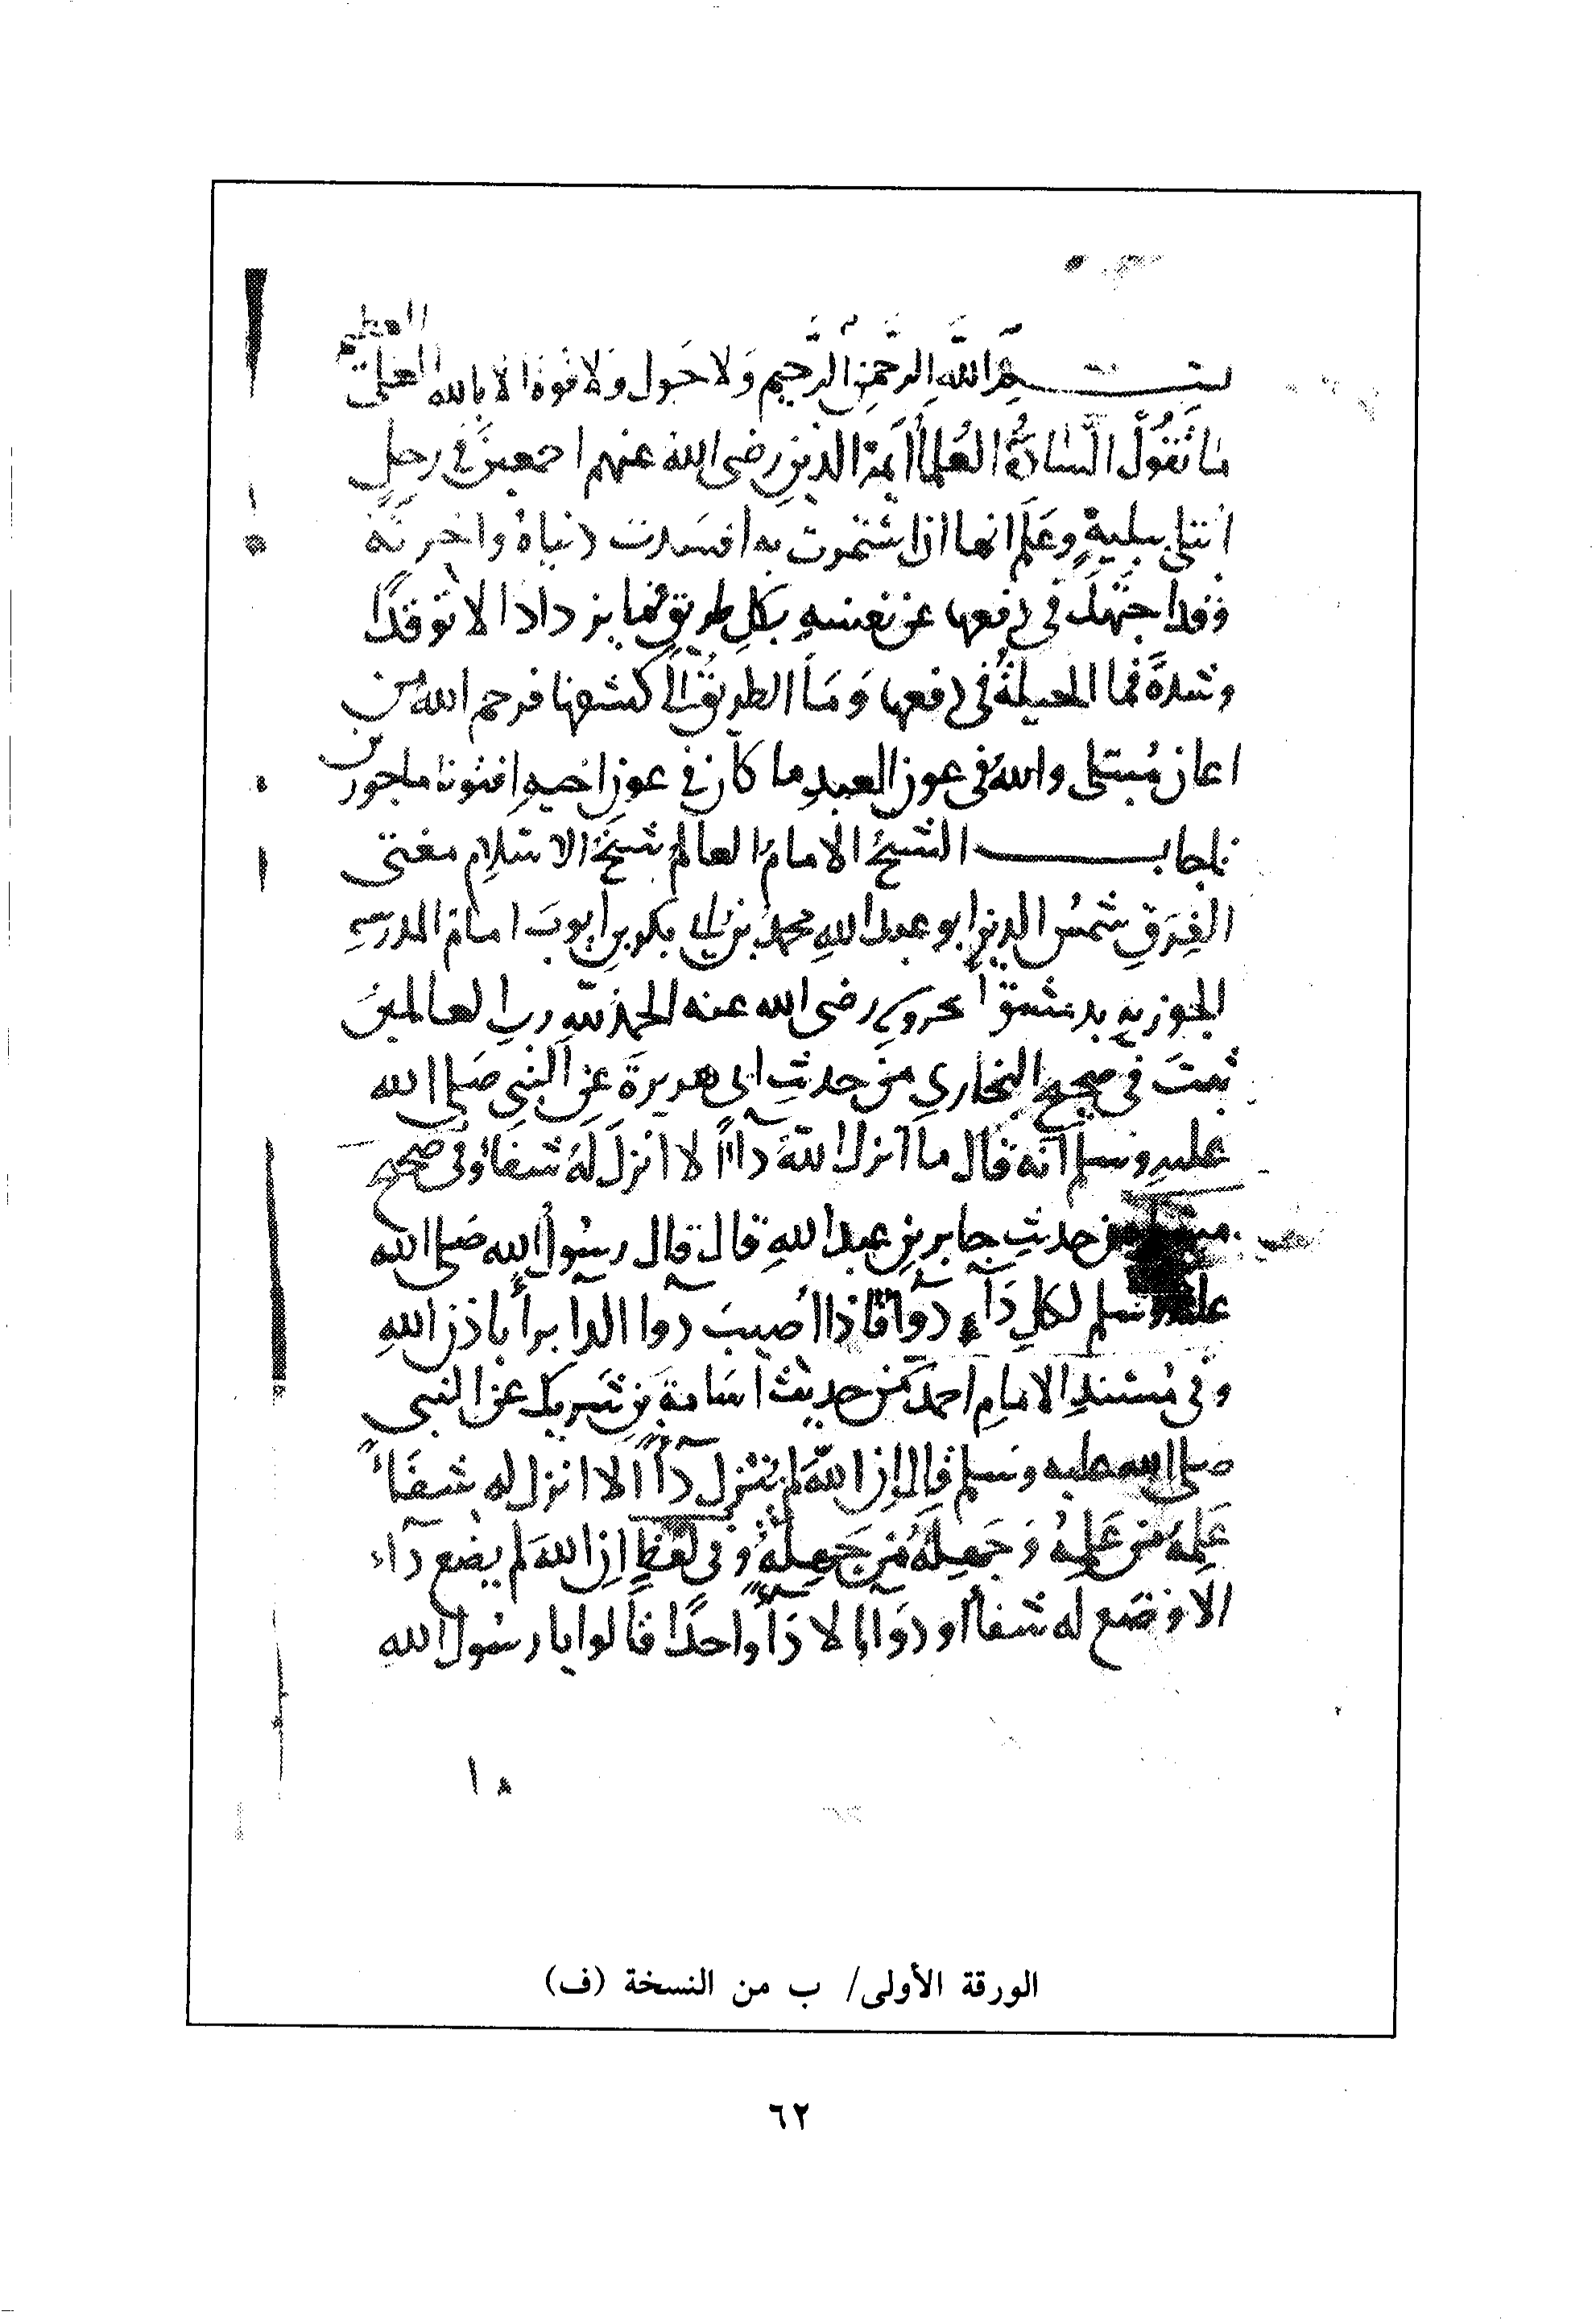 بسم الله الرحمن الرحيم ولا حول ولا قوة الا بالله العلي العظيم
ما تقول السادة العلما ايمة الدين رضي الله عنهم اجمعين في رجل
ابتلي ببلية وعلم انها اذا استمرت به افسدت دنياه واخرته
وقد اجتهد في دفعها عن نفسه بكل طريق فما يزداد الا توقدا
وشدة فما الحيلة في دفعها وما الطريق الى كشفها فرحم الله من
اعان مبتلى والله في عون العبد ما كان في عون اخيه افتونا ماجورين
فاجاب الشيخ الامام العالم شيخ الاسلام مفتي
الفرق شمس الدين ابو عبد الله محمد بن ابي بكر بن ايوب امام المدرسه
الجوزيه بدمشق المحروسه رضي الله عنه الحمد لله رب العالمين
ثبت في صحيح البخاري من حديث ابي هريرة عن النبي صلى الله
عليه وسلم انه قال ما انزل الله داأ الا انزل له شفاء وفي صحيح
مسلم من حديث جابر بن عبد الله قال قال رسول الله صلى الله
عليه وسلم لكل دآء دوآ فاذا اصيب دوا الدا برأ باذن الله
وفي مسند الامام احمد من حديث اسامة بن شريك عن النبي
صلى الله عليه وسلم قال ان الله لم ينزل دآأ الا انزل له شفاء
علمه من علمه وجهله من جهله وفي لفظ ان الله لم يضع دآء
الا وضع له شفاأ او دوآ الا دآأ واحدا قالوا يا رسول الله
الورقة الأولى/ ب من النسخة (ف)
٦٢